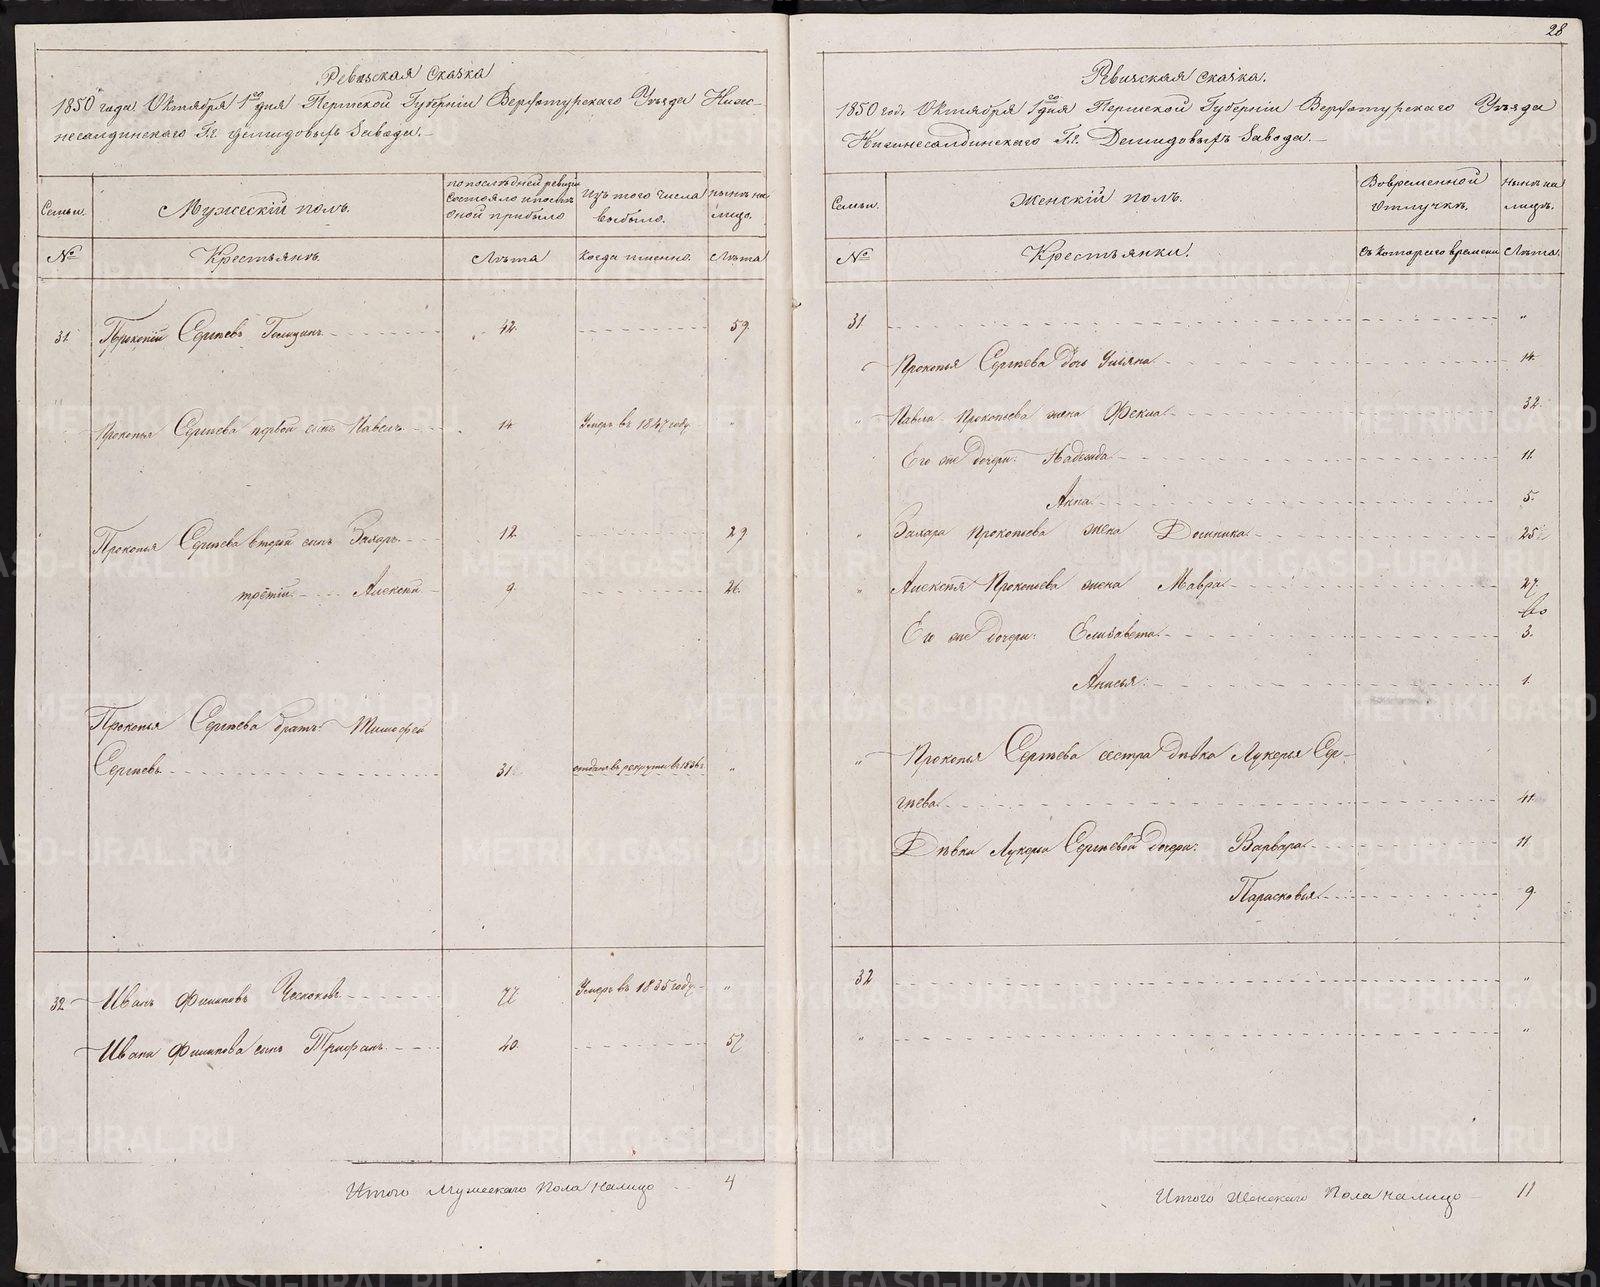 28
Ревизская Сказка
1850 года Октября 1го дня Пермской Губернiи Верхотурскаго Уѣзда Ниж-
несалдинскаго Гг. Демидовыхъ Завода.
Семьи.
Мужескiй полъ.
по послѣдней ревизiи
состояло и послѣ
оной прибыло
Изъ того числа
выбыло.
нынѣ на
лицо.
№
Крестьяне.
Лѣта
Когда именно.
Лѣта
31. Прокопiй Сергѣевъ 42. 59.
Прокопья Сергѣева первой сынъ Павелъ 14. Умеръ въ 1847 году. "
Прокопья Сергѣева вторый сынъ Захаръ 12. 29.
третiй Алексѣй 9. 26.
Прокопья Сергѣева братъ: Тимофей
Сергѣевъ 31. отданъ въ рекруты въ 1836 г. "
32. Иванъ Филиповъ 77. Умеръ въ 1835 году. "
Ивана Филипова сынъ Трифанъ 40. 57
Итого Мужескаго Пола налицо 4
Ревизская Сказка.
1850 год. Октября 1го дня Пермской Губернiи Верхотурскаго Уѣзда
Нижнесалдинскаго Гг. Демидовыхъ Завода.
Семьи.
Женскiй полъ.
Во временной
отлучкѣ.
Нынѣ на
лицѣ.
№
Крестьянки.
Съ котораго времени
Лѣта.
31. "
Прокопья Сергѣева дочь Ульяна 14.
" Павла Прокопьева жена Фекла 32.
Его же дочери: Надежда 11.
Анна 5.
" Захара Прокопьева жена Домника 25
" Алексѣя Прокопьева жена Мавра 27.
Его же дочери: Елизавета 3.
Анисья 1.
" Прокопья Сергѣева сестра дѣвка Лукерья Сер-
гѣева 41.
Дѣвки Лукерьи Сергѣевой дочери: Варвара 11
Парасковья 9.
32 "
" "
Итого Женскаго Пола налицо 11
METRIKI.GASO-URAL.RU